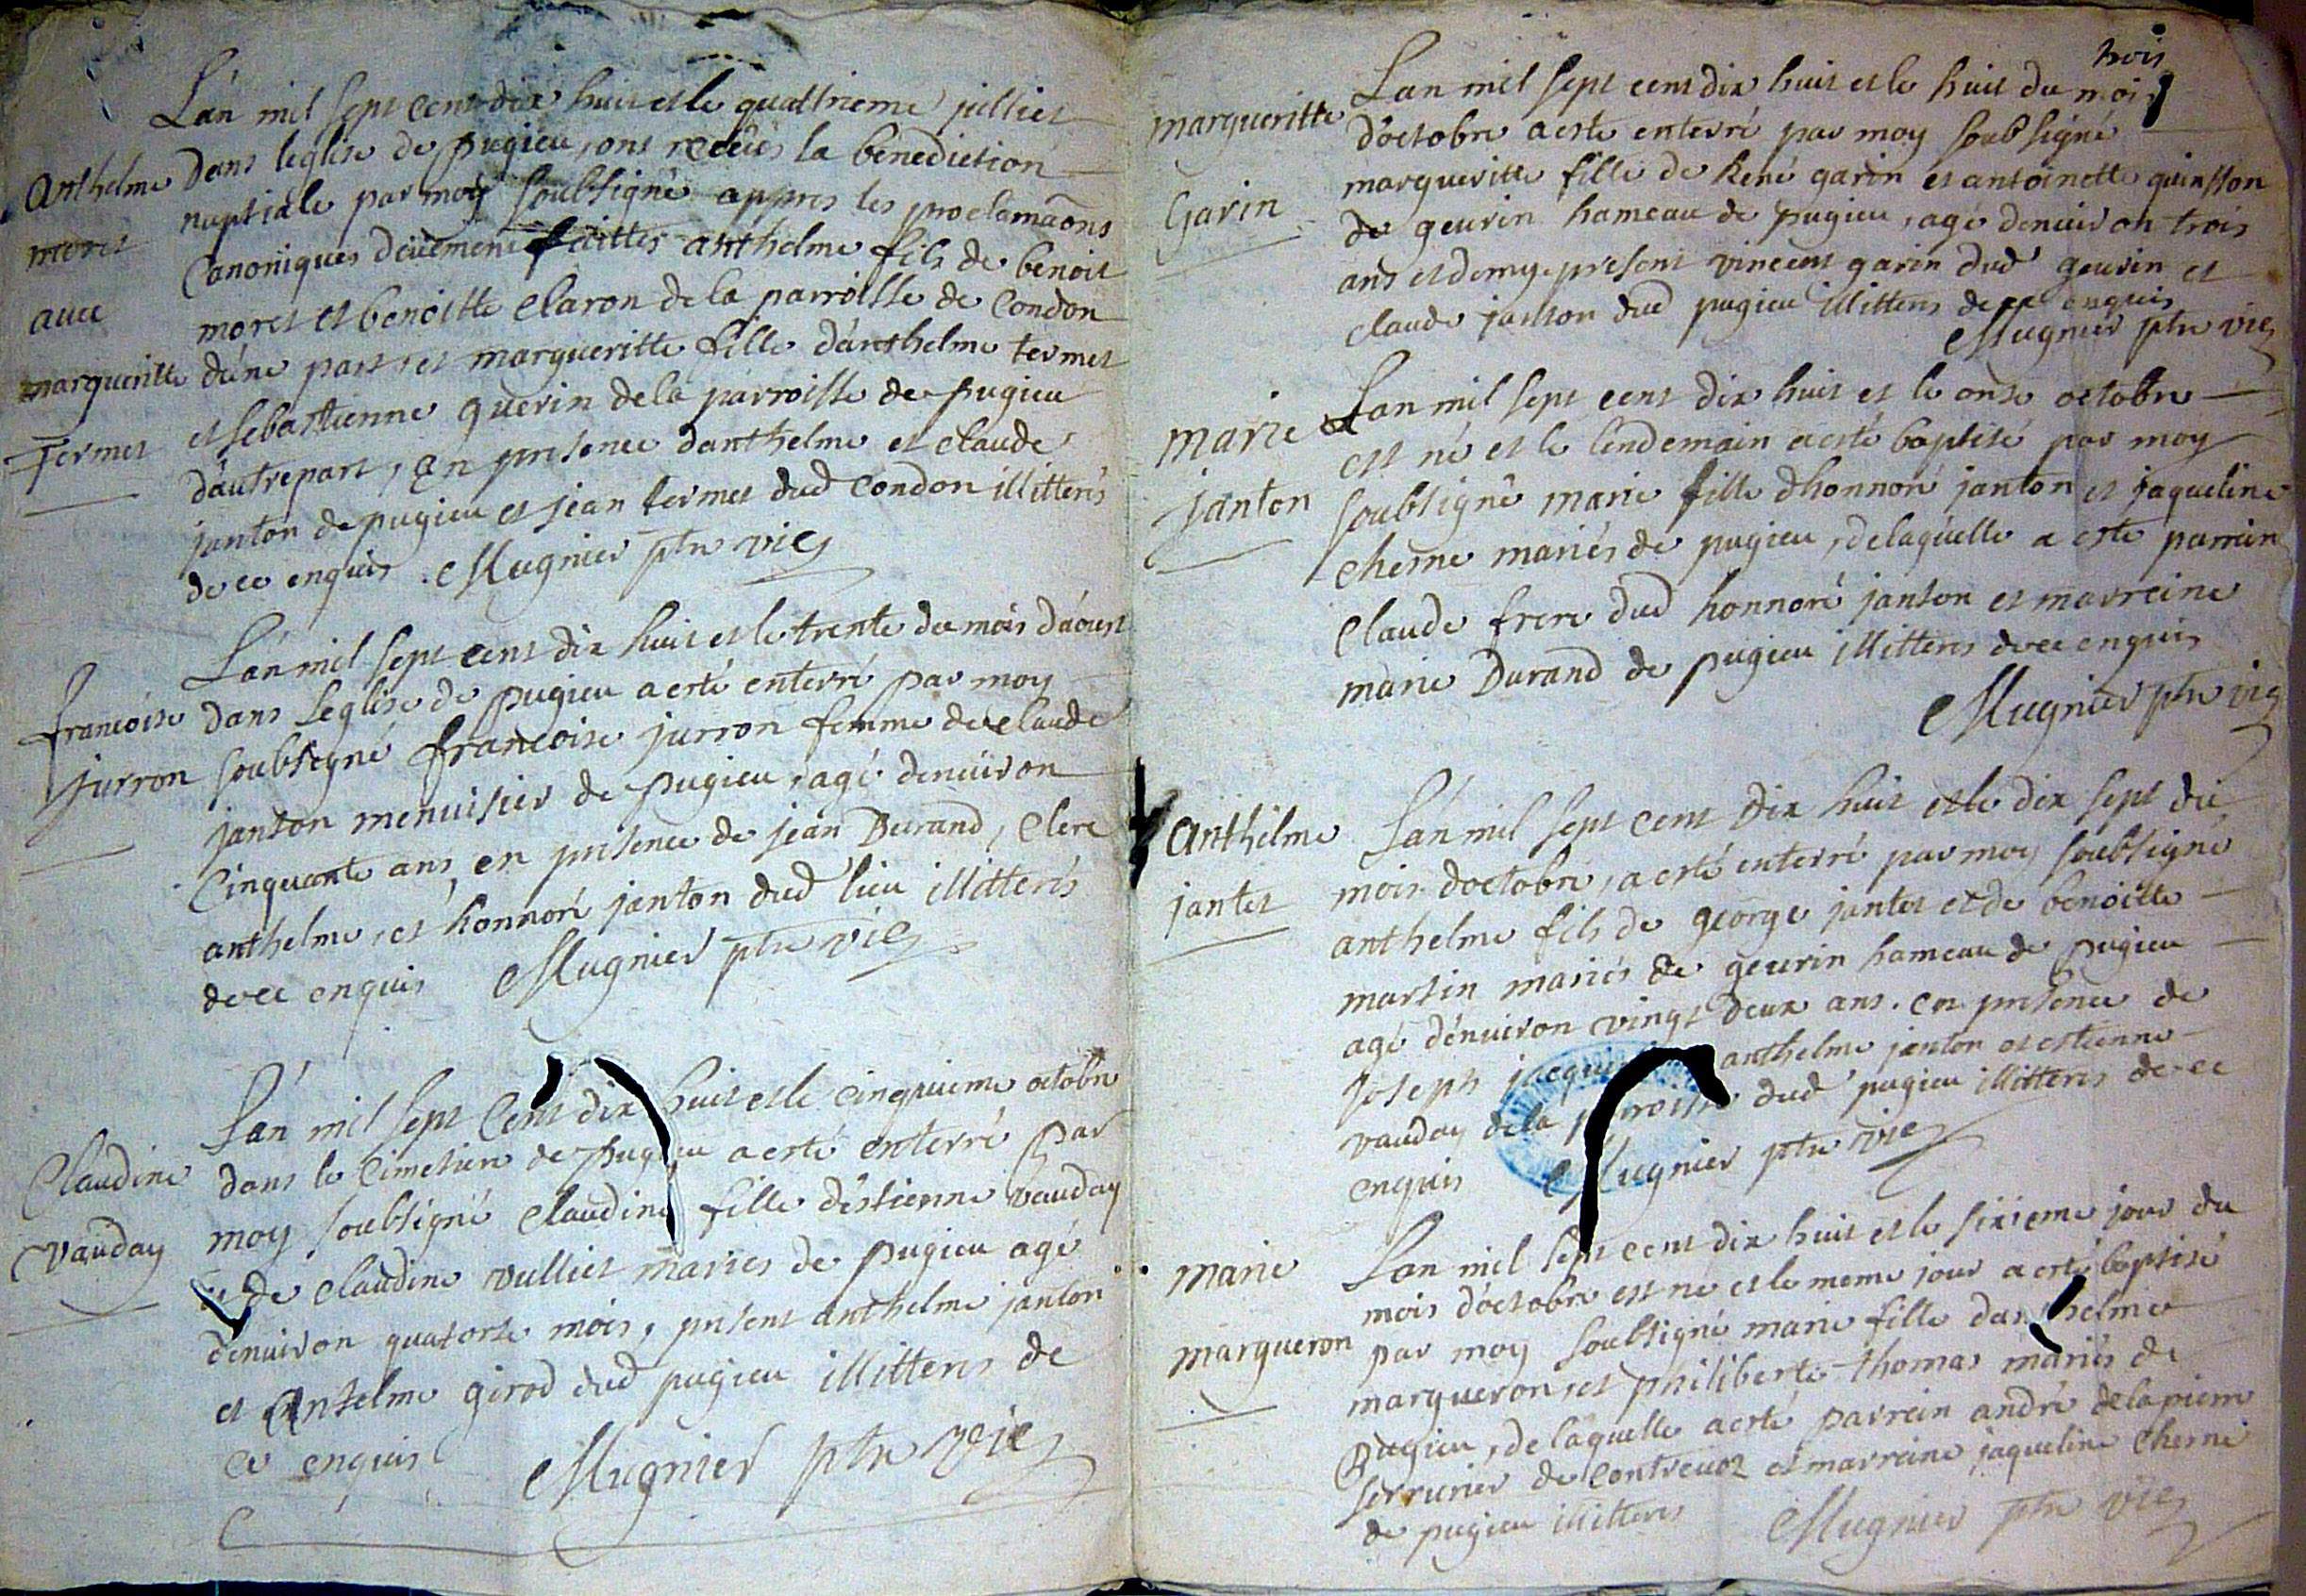 Lan mil sept cent dix huit et le quattrieme julliet
Anthelme
dans leglise de pugieu, ont receües la benediction
nuptiale par moy soubsigné appres les proclamaõns
moret
Canoniques deüement faittes anthelme fils de benoit
avec
moret et benoitte Claron de la parroisse de Condon
margueritte
d'une part, et margueritte fille d'anthelme termet
Termet
et sebastienne guerin de la parroisse de pugieu
d'autre part, en presence danthelme et claude
janton de pugieu et jean termet dud condon illitterés
de ce enquis. Mugnier ptre vic
Lan mil sept cent dix huit et le trente du mois d'aoust
francoise
dans Leglise de pugieu a esté enterré par moy
jurron
soubsigné francoise jurron femme de claude
janton menuisier de pugieu, agé denuiron
Cinquante ans, en presence de jean Durand, Clerc
anthelme, et honnoré janton dud lieu illitterés
de ce enquis Mugnier ptre vic
Lan mil sept Cent dix huit et le cinquieme octobre
Claudine
dans le Cimetiere de pugieu a esté enterré par
Vauday
moy soubsigné Claudine fille d'estienne Vauday
et de Claudine vulliet mariés de pugieu agé
denuiron quatorse mois, present anthelme janton
et Anselme girod dud pugieu illitterés de
ce enquis Mugnier ptre vic
trois
Lan mil sept cent dix huit et le huit du mois
margueritte
d'octobre a esté enterré par moy soubsigné
Garin
margueritte fille de René garin et antoinette quinsson
de geurin hameau de pugieu, agé denuiron trois
ans et demy. present vincent garin dud geurin et
claude janton dud pugieu illitterés de ce enquis
Mugnier ptre vic
marie
Lan mil sept cent dix huit et le onse octobre
est né et le lendemain a esté baptisé par moy
janton
soubsigné marie fille dhonnoré janton et jaqueline
Cherne mariés de pugieu, de laquelle a esté parrein
Claude frere dud honnoré janton et marreine
marie Durand de pugieu illitterés de ce enquis
Mugnier ptre vic
Anthelme
Lan mil sept cent Dix huit et le dix sept du
janter
mois doctobre, a esté enterré par moy soubsigné
anthelme fils de george janter et de benoitte
martin mariés de geurin hameau de pugieu
agé denuiron vingt deux ans. en presence de
Joseph anthelme janton et estienne
vauday de la parroisse dud pugieu illitterés de ce
enquis Mugnier ptre vic
marie
Lan mil sept cent dix huit et le sixieme jour du
mois d'octobre est né et le meme jour a esté baptisé
margueron
par moy soubsigné marie fille danthelme
margueron, et philiberte thomas mariés de
pugieu, de laquelle a esté parrein andré delapierre
serrurier de Contreuoz et marreine jaqueline Cherne
de pugieu illitterés Mugnier ptre vic